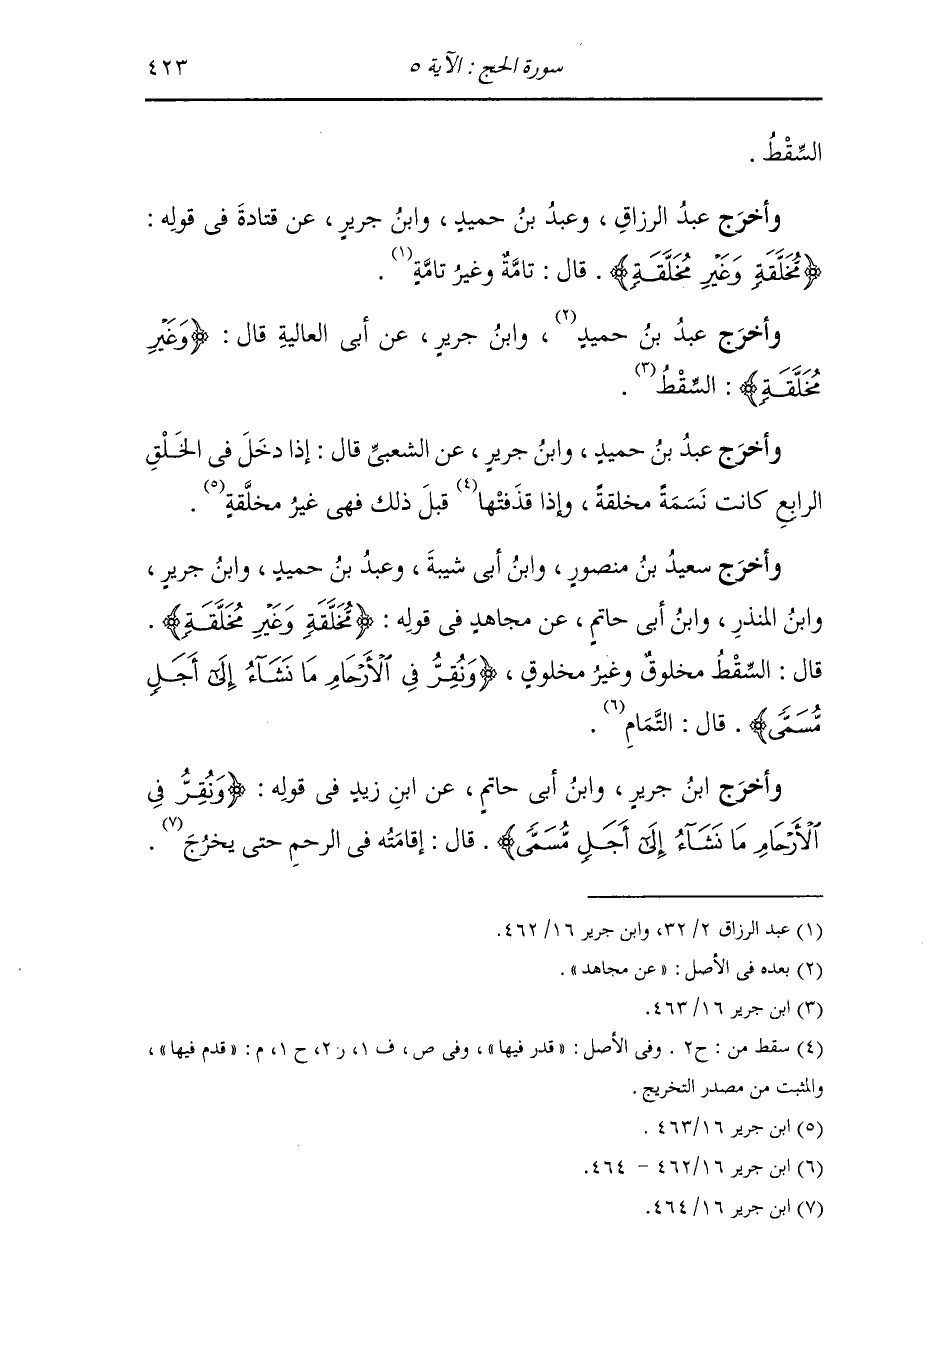 سورة الحج : الآية ٥
٤٢٣
السِّقْطُ .
وأخرَج عبدُ الرزاقِ ، وعبدُ بنُ حميدٍ ، وابنُ جريرٍ ، عن قتادةَ فى قولِه :
﴿مُّخَلَّقَةٍ وَغَيْرِ مُخَلَّقَةٍ﴾ . قال : تامَّةٌ وغيرُ تامَّةٍ(١) .
وأخرَج عبدُ بنُ حميدٍ(٢) ، وابنُ جريرٍ ، عن أبى العاليةِ قال : ﴿وَغَيْرِ
مُخَلَّقَةٍ﴾ : السِّقْطُ(٣) .
وأخرَج عبدُ بنُ حميدٍ ، وابنُ جريرٍ ، عن الشعبىِّ قال : إذا دخَلَ فى الخَلْقِ
الرابعِ كانت نَسَمَةً مخلقةً ، وإذا قذَفتْها(٤) قبلَ ذلك فهى غيرُ مخلَّقةٍ(٥) .
وأخرَج سعيدُ بنُ منصورٍ ، وابنُ أبى شيبةَ ، وعبدُ بنُ حميدٍ ، وابنُ جريرٍ ،
وابنُ المنذرِ ، وابنُ أبى حاتمٍ ، عن مجاهدٍ فى قولِه : ﴿مُّخَلَّقَةٍ وَغَيْرِ مُخَلَّقَةٍ﴾ .
قال : السِّقْطُ مخلوقٌ وغيرُ مخلوقٍ ، ﴿وَنُقِرُّ فِى ٱلْأَرْحَامِ مَا نَشَآءُ إِلَىٰٓ أَجَلٍ
مُّسَمًّى﴾ . قال : التَّمَامِ(٦) .
وأخرَج ابنُ جريرٍ ، وابنُ أبى حاتمٍ ، عن ابنِ زيدٍ فى قولِه : ﴿وَنُقِرُّ فِى
ٱلْأَرْحَامِ مَا نَشَآءُ إِلَىٰٓ أَجَلٍ مُّسَمًّى﴾ . قال : إقامَتُه فى الرحمِ حتى يخرُجَ(٧) .
(١) عبد الرزاق ٢/ ٣٢، وابن جرير ١٦/ ٤٦٢.
(٢) بعده فى الأصل : « عن مجاهد » .
(٣) ابن جرير ١٦/ ٤٦٣.
(٤) سقط من : ح٢ . وفى الأصل : « قدر فيها » ، وفى ص ، ف ١، ر٢، ح ١، م : « قدم فيها » ،
والمثبت من مصدر التخريج .
(٥) ابن جرير ٤٦٣/١٦ .
(٦) ابن جرير ٤٦٢/١٦ – ٤٦٤.
(٧) ابن جرير ١٦/ ٤٦٤.